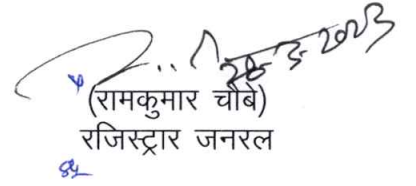 28-3-2023
(रामकुमार चौबे)
रजिस्ट्रार जनरल